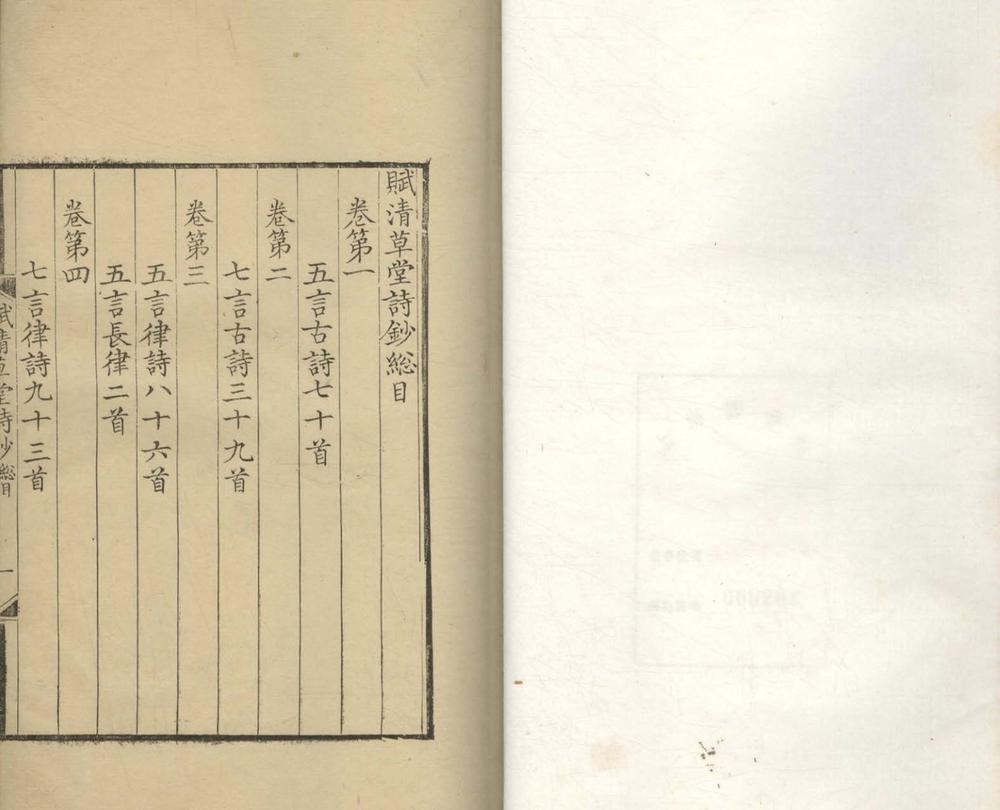 賦清草堂詩鈔総目
卷第一
五言古詩七十首
卷第二
七言古詩三十九首
卷第三
五言律詩八十六首
五言長律二首
卷第四
七言律詩九十三首
賦清草堂詩鈔総目
一